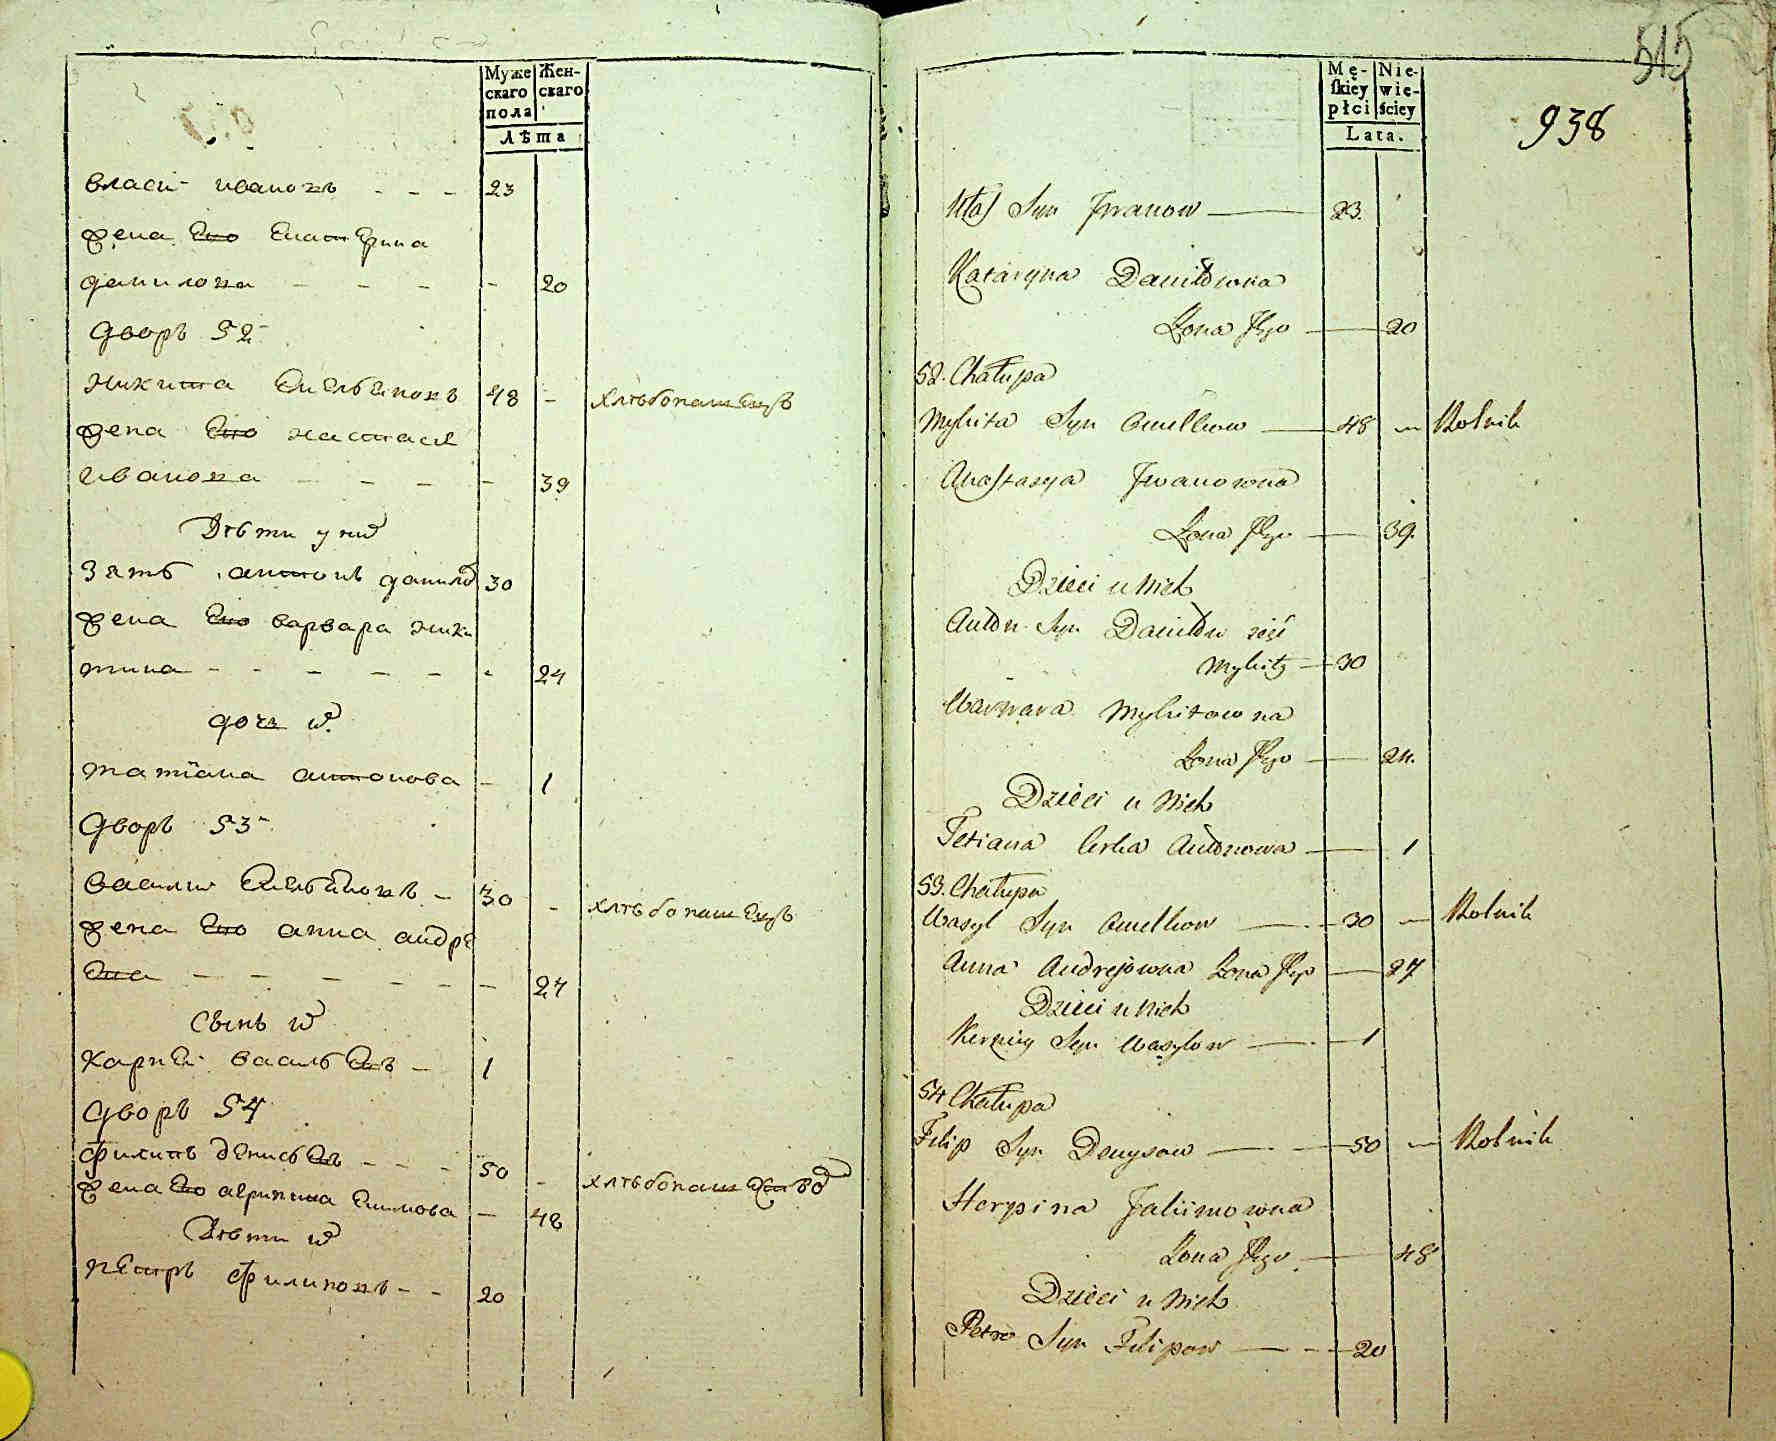 Муже Жен-
скаго скаго
пола
Лѣта
власъ ивановъ - - - 23
жена Его Екатерина
данилова - - - - 20
дворъ 52
никита Емельяновъ 48 - хлѣбопашецъ
жена Его настася
иванова - - - - 39
Дѣти у них
зять антонъ данилов 30
жена Его варвара ники
тина - - - - - - 24
дочь их
татiана антонова - 1
дворъ 53
василий Емельяновъ - 30 - хлѣбопашецъ
жена Его анна андре
Ева - - - - - - - 27
Сынъ их
карпей васильЕвъ - 1
дворъ 54
филипъ денисьЕвъ - - - 50 - хлѣбопашество
жена Его агрипина Екимова - 48
Дѣти их
пЕтръ филиповъ - - 20
515
938
Mę- Nie-
ſkiey wie-
płci ściey
Lata.
Własſ Syn Jwanow 23.
Kataryna Daniłowna
Żona Jego 20
52. Chałupa
Mykita Syn Omelkow 48 Rolnik
Anaſtasya Jwanowna
Żona Jego 39.
Dzieci u Nich
Anton Syn Daniłow zięć
Mykity 30
Warwara Mykitowna
Żona Jego 24.
Dzieci u Nich
Tetiana Corka Antonowa 1
53. Chałupa
Wasyl Syn Omelkow 30 Rolnik
Anna Andrejowna Żona Jego 27
Dzieci u Nich
Kerniey Syn Wasylow 1
54 Chałupa
Filip Syn Denysow 50 Rolnik
Horpina Jakimowna
Żona Jego 48
Dzieci u Nich
Petro Syn Filipow 20